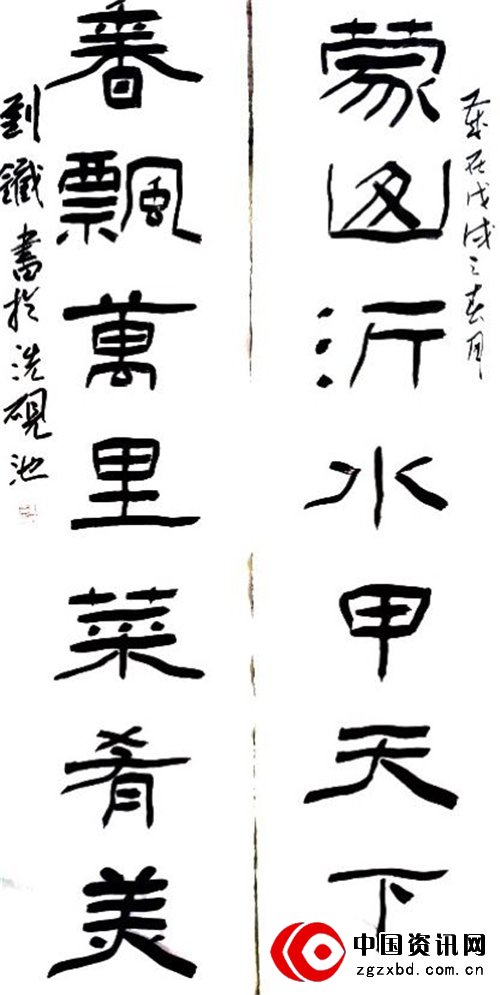 歲在戊戌之春月
蒙山沂水甲天下
香飄萬里菜肴美
劉鐵書於洗硯池
中国资讯网
zgzxbd.com.cn